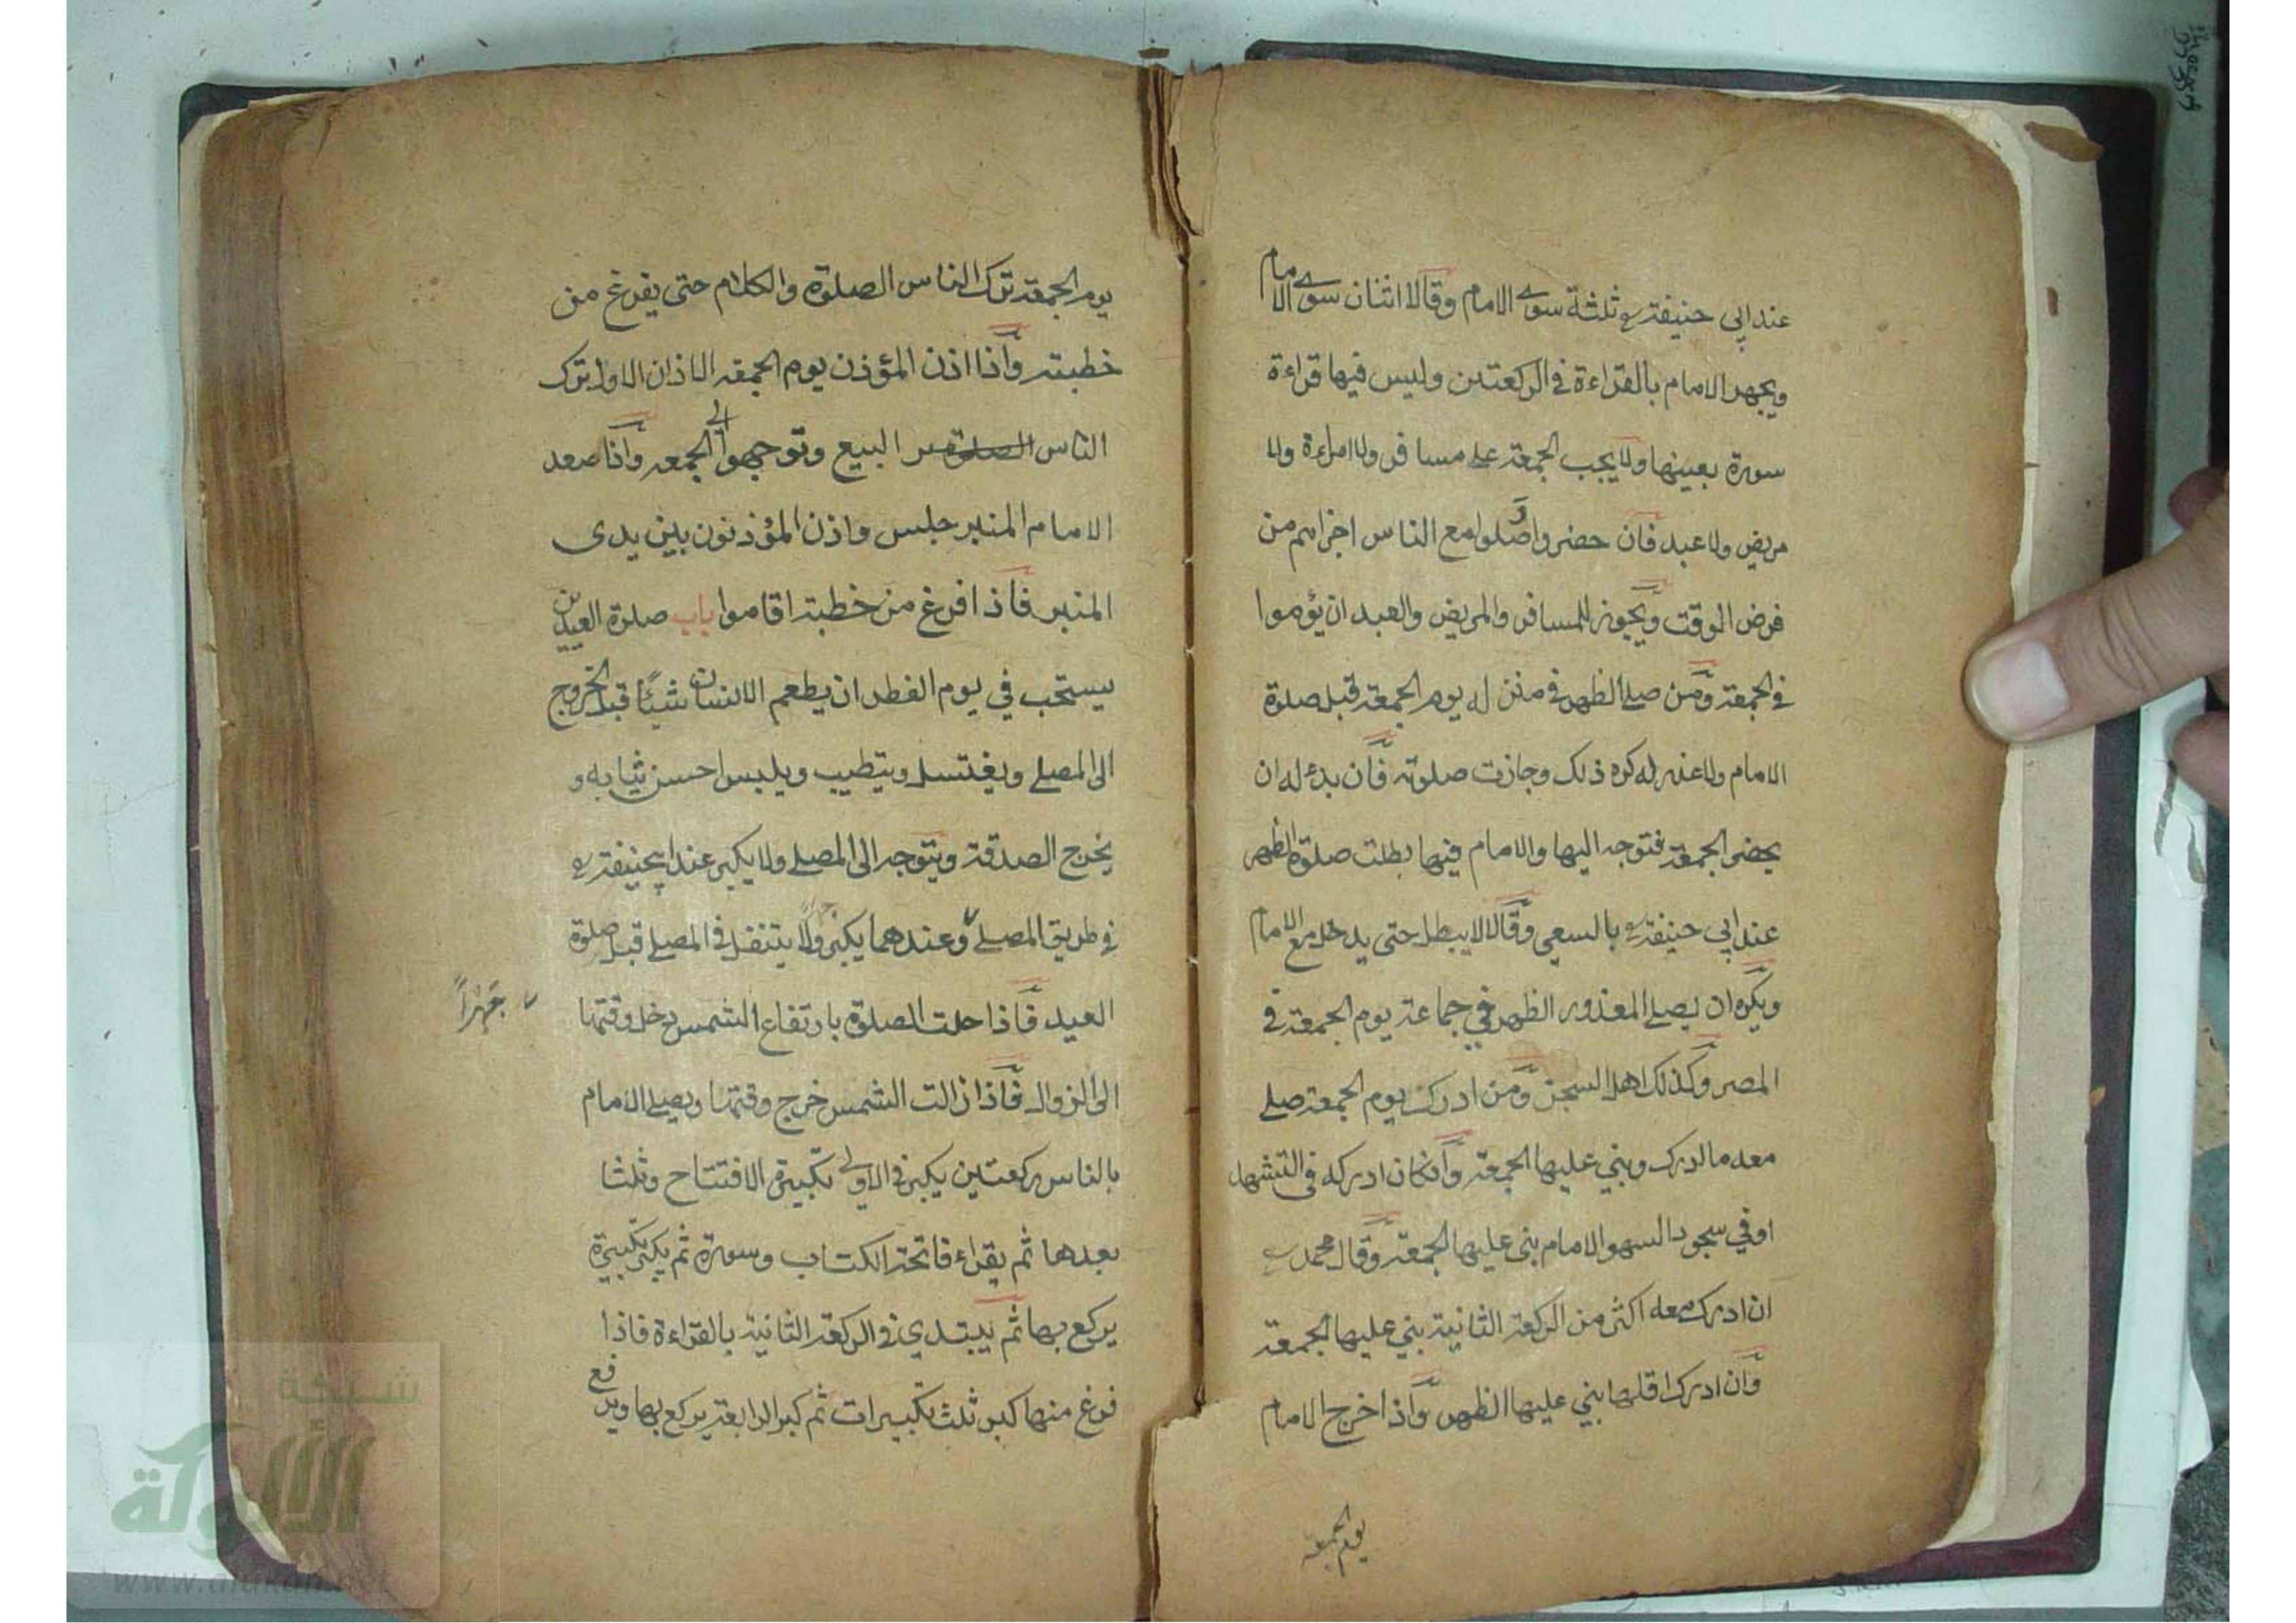 عند ابي حنيفة ثلثة سوى الامام وقالا اثنان سوى الامام
ويجهر الامام بالقراءة في الركعتين وليس فيها قراءة
سورة بعينها ولا يجب الجمعة على مسافر ولا امراءة ولا
مريض ولا عبد فان حضروا وصلوا مع الناس اجزاهم من
فرض الوقت ويجوز للمسافر والمريض والعبد ان يؤموا
في الجمعة ومن صلى الظهر في منزله يوم الجمعة قبل صلوة
الامام ولا عذر له كره ذلك وجازت صلوته فان بدء له ان
يحضر الجمعة فتوجه اليها والامام فيها بطلت صلوة الظهر
عند ابي حنيفة بالسعي وقالا لا يبطل حتى يدخل مع الامام
ويكره ان يصلي المعذور الظهر في جماعة يوم الجمعة في
المصر وكذلك اهل السجن ومن ادرك يوم الجمعة صلى
معه ما ادرك وبني عليها الجمعة وان كان ادركه في التشهد
او في سجود السهو الامام بنى عليها الجمعة وقال محمد
ان ادرك معه اكثر من الركعة الثانية بني عليها الجمعة
وان ادرك اقلها بني عليها الظهر واذا خرج الامام
يوم الجمعة
يوم الجمعة ترك الناس الصلوة والكلام حتى يفرغ من
خطبته واذا اذن المؤذن يوم الجمعة الاذان الاول ترك
الناس البيع وتوجهوا الى الجمعة واذا صعد
الامام المنبر جلس واذن المؤذنون بين يدى
المنبر فاذا فرغ من خطبته اقاموا باب صلوة العيدين
يستحب في يوم الفطر ان يطعم الانسان شيئا قبل الخروج
الى المصلى ويغتسل ويتطيب ويلبس احسن ثيابه و
يخرج الصدقة ويتوجه الى المصلى ولا يكبر عند ابي حنيفة
في طريق المصلى وعندهما يكبر ولا يتنفل في المصلى قبل صلوة
العيد فاذا حلت الصلوة بارتفاع الشمس دخل وقتها
جهراً
الى الزوال فاذا زالت الشمس خرج وقتها ويصلى الامام
بالناس ركعتين يكبر في الاولى تكبيرة الافتتاح وثلثا
بعدها ثم يقراء فاتحة الكتاب وسورة ثم يكبر تكبيرة
يركع بها ثم يبتدي في الركعة الثانية بالقراءة فاذا
فرغ منها كبر ثلث تكبيرات ثم كبر الرابعة يركع بها ويرفع
شبكة
الألوكة
www.alukah.net